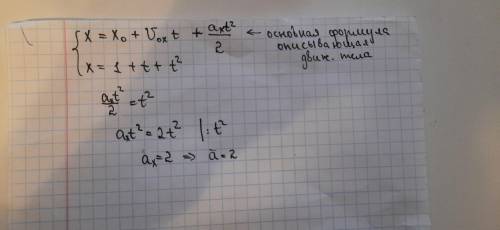 x = x₀ + V₀ₓ t + aₓt²/2 ← основная формула
описывающая
движ. тела
x = 1 + t + t²
aₓt²/2 = t²
aₓt² = 2t² | : t²
aₓ = 2 ⇒ a = 2